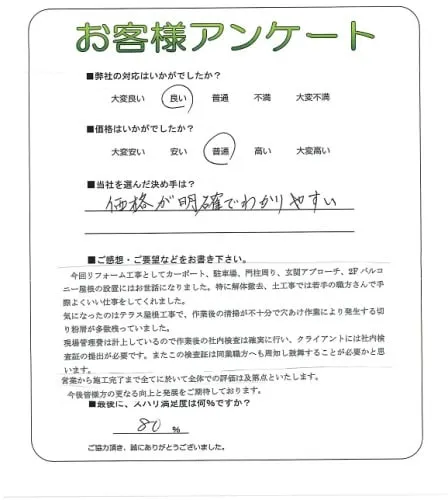 お客様アンケート
■弊社の対応はいかがでしたか?
大変良い 良い 普通 不満 大変不満
■価格はいかがでしたか?
大変安い 安い 普通 高い 大変高い
■当社を選んだ決め手は?
価格が明確でわかりやすい
■ご感想・ご要望などをお書き下さい。
今回リフォーム工事としてカーポート、駐車場、門柱周り、玄関アプローチ、2Fバルコ
ニー屋根の設置にはお世話になりました。特に解体撤去、土工事では若手の職方さんで手
際よくいい仕事をしてくれました。
気になったのはテラス屋根工事で、作業後の清掃が不十分で穴あけ作業により発生する切
り粉層が多数残っていました。
現場管理費は計上しているので作業後の社内検査は確実に行い、クライアントには社内検
査証の提出が必要です。またこの検査証は同業職方へも周知し鼓舞することが必要かと思
います。
営業から施工完了まで全てに於いて全体での評価は及第点といたします。
今後皆様方の更なる向上と発展をご期待しております。
■最後に、ズバリ満足度は何%ですか?
80 %
ご協力頂き、誠にありがとうございました。